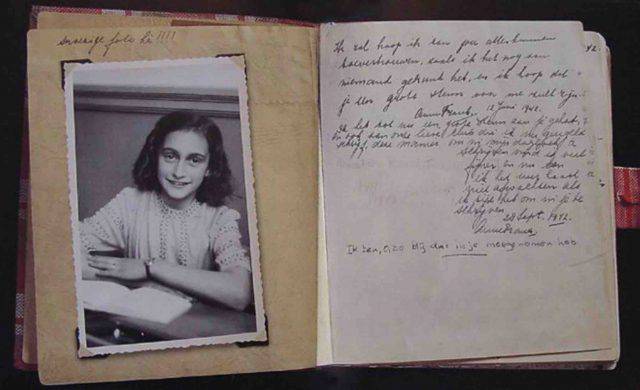 snoezige foto hè!!!!
Ik zal hoop ik aan jou alles kunnen
toevertrouwen, zoals ik het nog aan
niemand gekund heb, en ik hoop dat
je een grote steun voor me zult zijn.
Anne Frank. 12 Juni 1942.
Ik heb tot nu toe een grote steun aan je gehad,
en ook aan onze lieve club die ik nu geregeld
schrijf, deze manier om in mijn dagboek te
schrijven vind ik veel
fijner en nu kan
ik het uur haast
niet afwachten als
ik tijd heb om in je te
schrijven.
28 Sept. 1942.
Anne Frank.
Ik ben, o, zo blij dat ik je meegenomen heb
42.